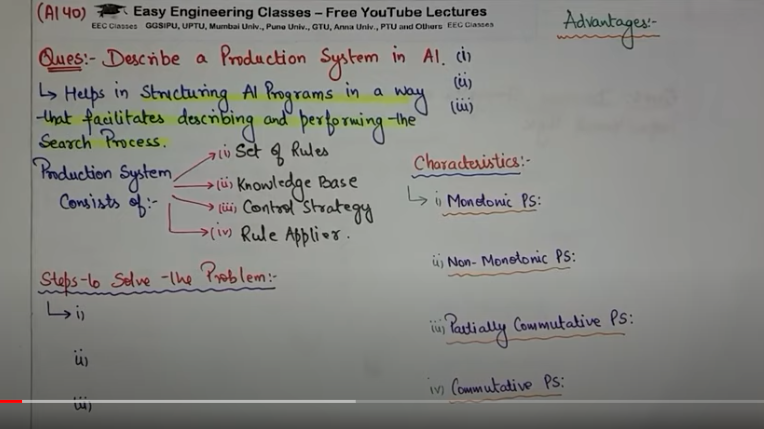 (AI 40)
Easy Engineering Classes – Free YouTube Lectures
EEC Classes GGSIPU, UPTU, Mumbai Univ., Pune Univ., GTU, Anna Univ., PTU and Others EEC Classes
Ques:- Describe a Production System in AI.
↳ Helps in Structuring AI Programs in a way
that facilitates describing and performing the
Search Process.
Production System
Consists of:-
(i) Set of Rules
(ii) Knowledge Base
(iii) Control Strategy
(iv) Rule Applier.
Steps to Solve the Problem:-
↳ i)
ii)
iii)
Advantages:-
(i)
(ii)
(iii)
Characteristics:-
↳ i) Monotonic PS:
ii) Non-Monotonic PS:
iii) Partially Commutative PS:
iv) Commutative PS: